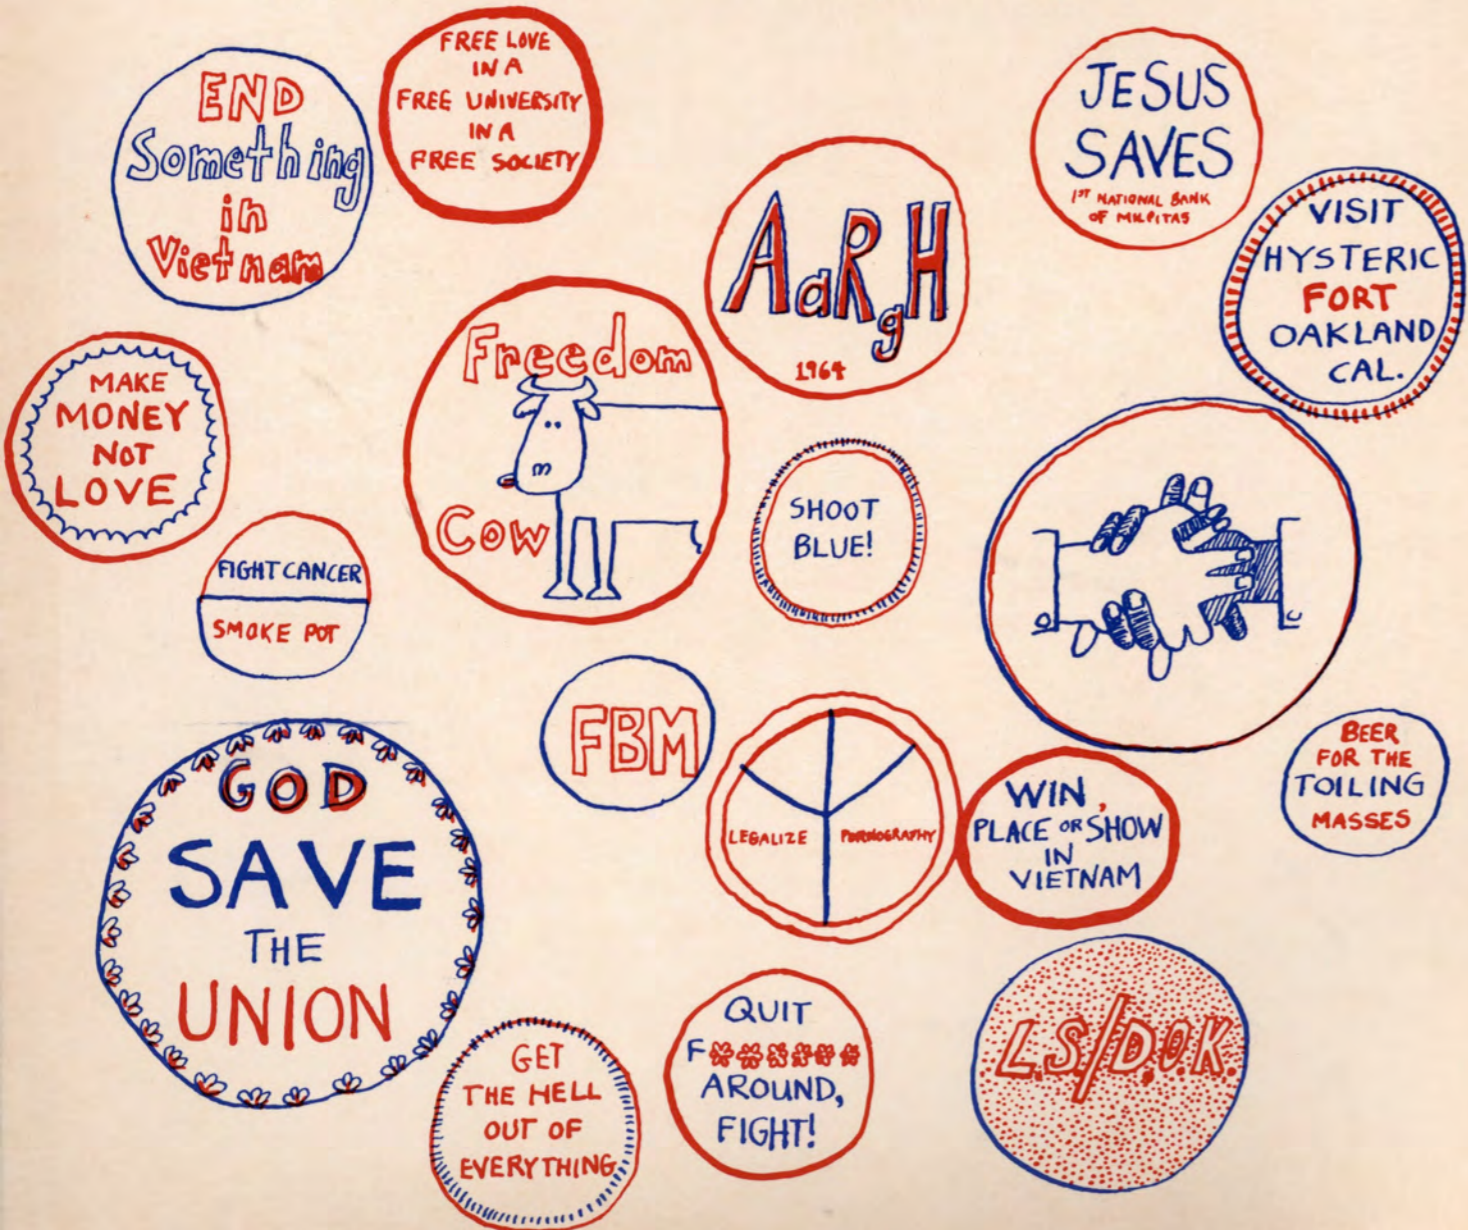 END
Something
in
Vietnam
FREE LOVE
IN A
FREE UNIVERSITY
IN A
FREE SOCIETY
JESUS
SAVES
1ST NATIONAL BANK
OF MILPITAS
AaRgH
1964
VISIT
HYSTERIC
FORT
OAKLAND
CAL.
Freedom
Cow
MAKE
MONEY
NOT
LOVE
SHOOT
BLUE!
FIGHT CANCER
SMOKE POT
FBM
LEGALIZE PORNOGRAPHY
WIN,
PLACE OR SHOW
IN
VIETNAM
BEER
FOR THE
TOILING
MASSES
GOD
SAVE
THE
UNION
GET
THE HELL
OUT OF
EVERYTHING
QUIT
F******
AROUND,
FIGHT!
L.S./D.O.K.